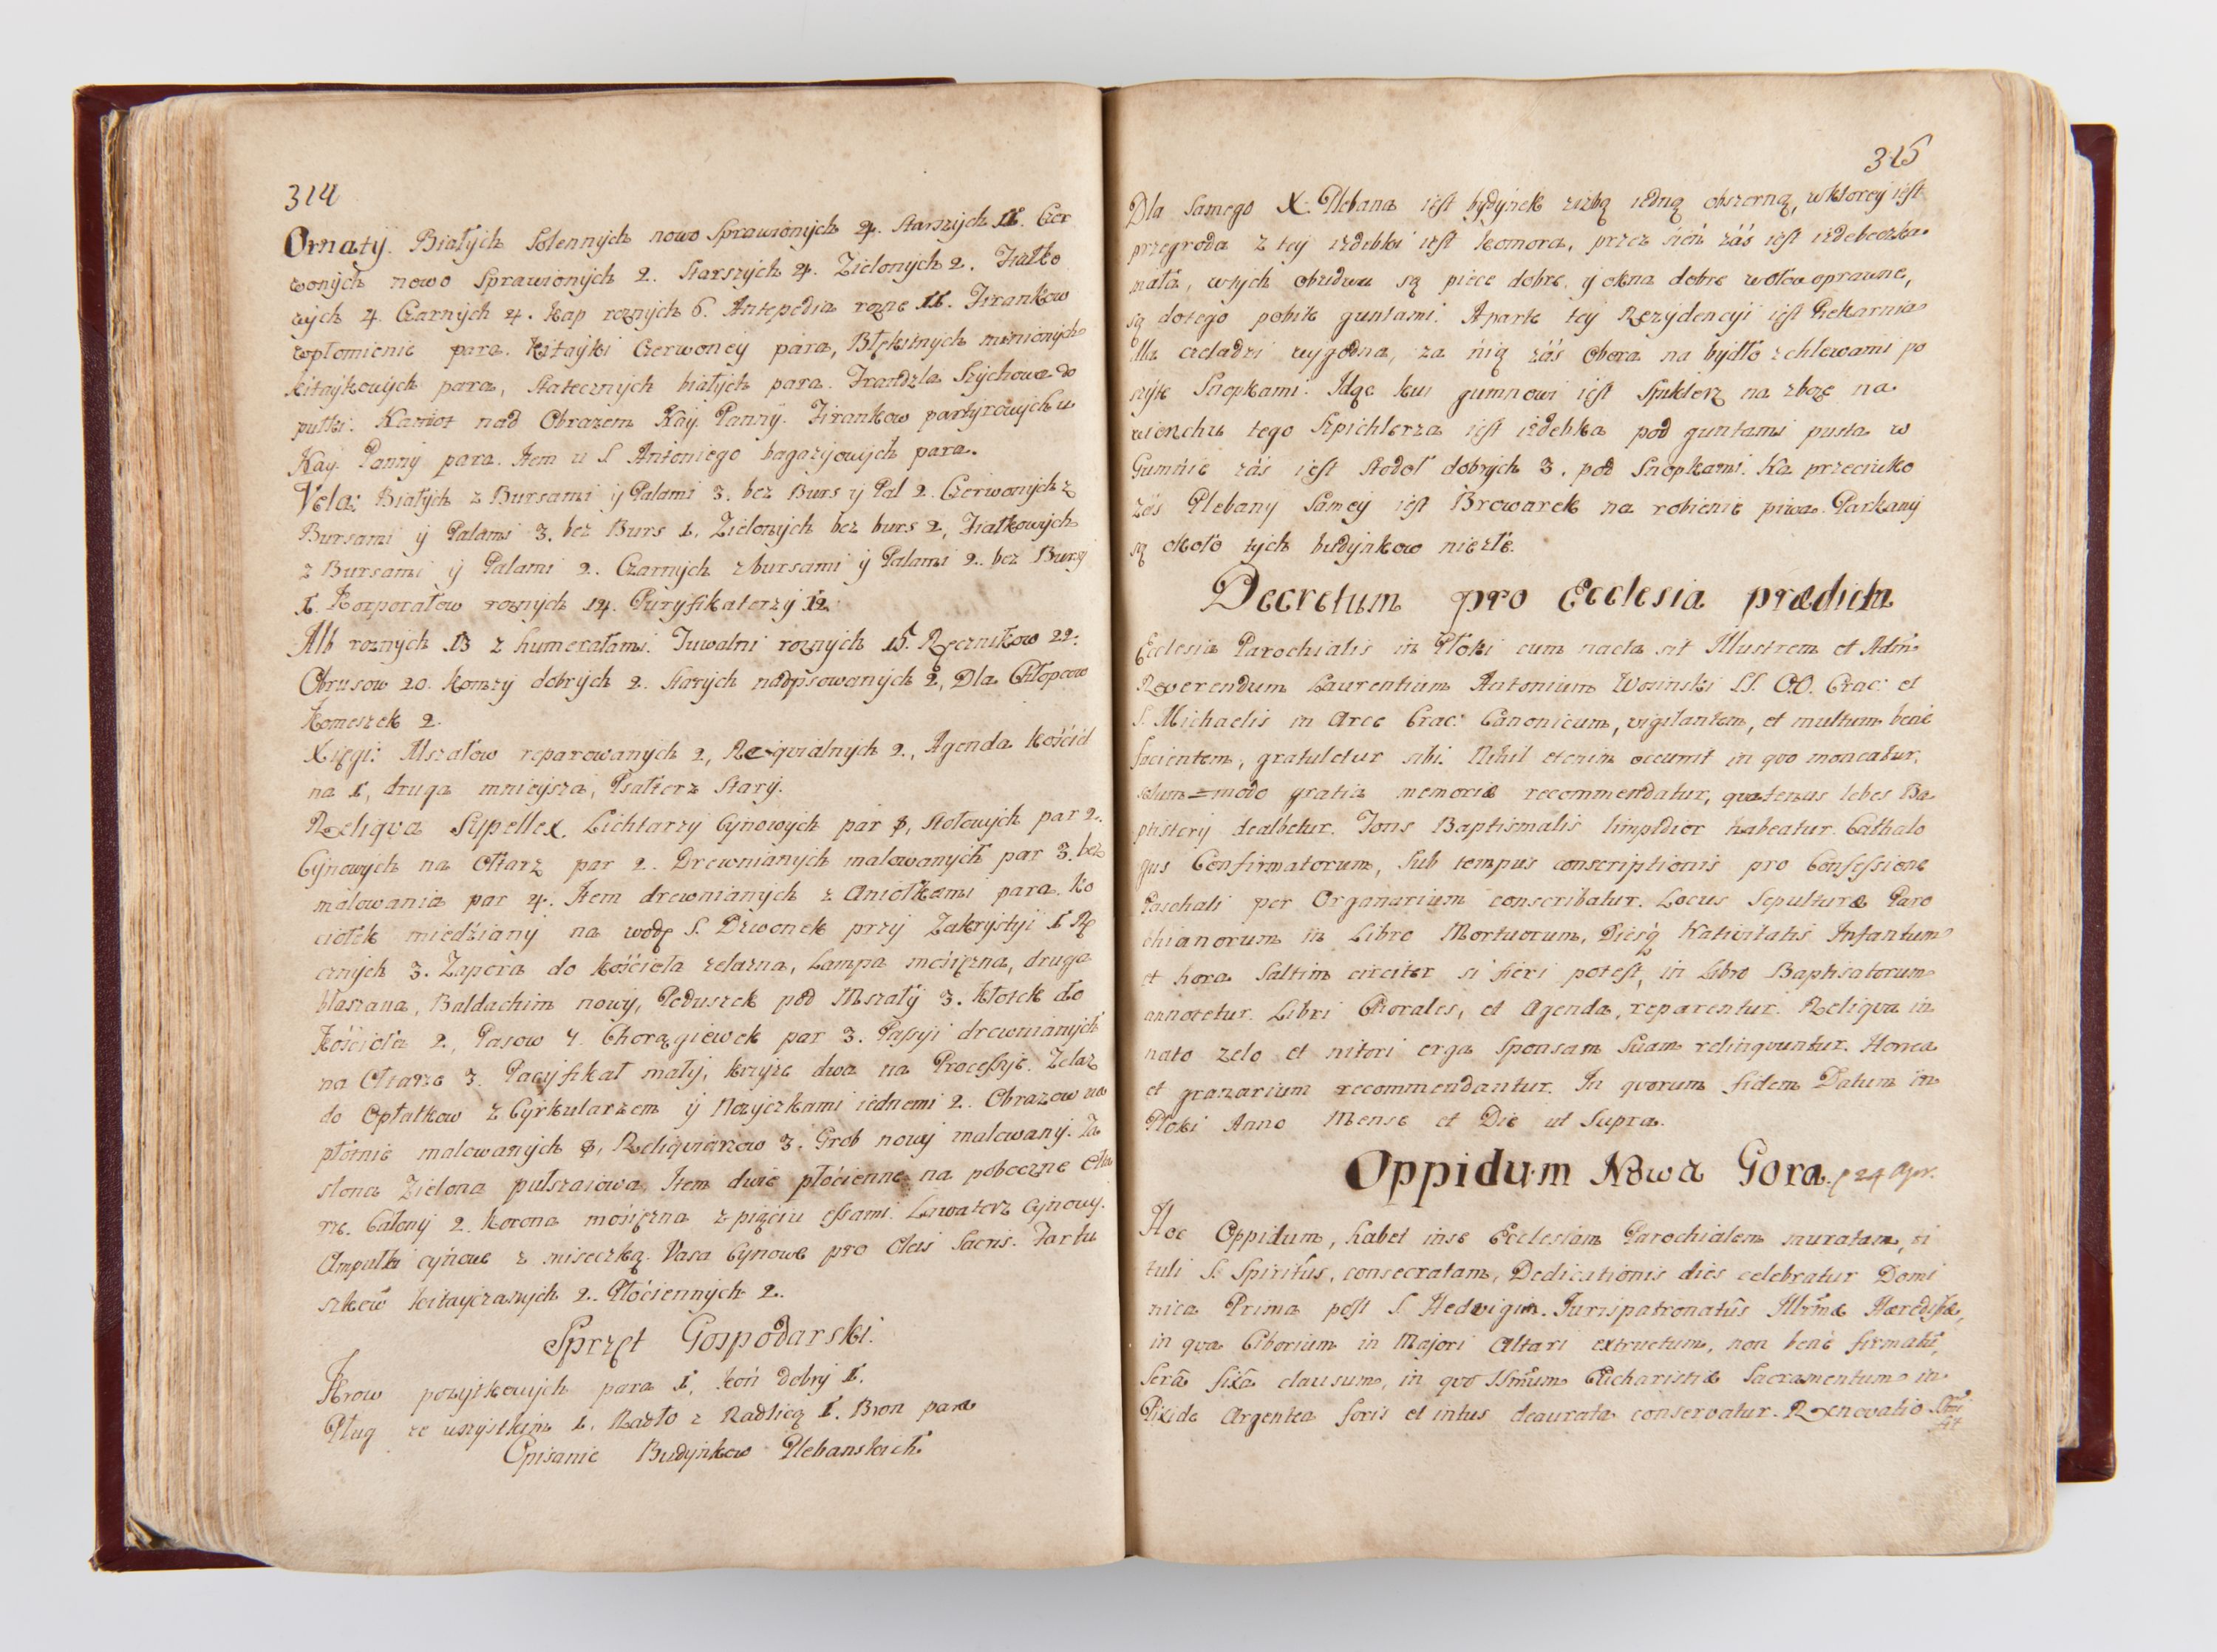 314
Ornaty. Białych Solennych nowo Sprawionych 4. Starszych 11. Czer
wonych nowo Sprawionych 2. Starszych 4. Zielonych 2. Fiałko
wych 4. Czarnych 4. Kap roznych 6. Antepedia rozne 11. Firankow
wpłomienie para. Kitayki Czerwoney para, Błękitnych mienionych
kitaykowych para, Statecznych białych para. Frandzla Szychowa do
pułki. Kamiot nad Obrazem Nay. Panny. Firankow partyrowych u
Nay. Panny para. Item u S. Antoniego bagazyowych para.
Vela: Białych z Bursami y Palami 3. bez Burs y Pal 2. Czerwonych z
Bursami y Palami 3. bez Burs 1. Zielonych bez burs 2, Fiałkowych
z Bursami y Palami 2. Czarnych z bursami y Palami 2. bez Bursy
1. Korporałow roznych 14. Puryfikaterzy 12.
Alb roznych 13 z humerałami. Tuwalni roznych 15. Ręcznikow 22.
Obrusow 20. Komzy dobrych 2. Starych nadpsowanych 2, Dla Chłopcow
Komeszek 2.
Xięgi: Mszałow reparowanych 2, Requialnych 2., Agenda Kościel
na 1, druga mnieysza, Psałterz Stary.
Reliqva Supellex. Lichtarzy Cynowych par Stołowych par 2.
Cynowych na Ołtarz par 2. Drewnianych malowanych par 3. bez
malowania par 4. Item drewnianych z Aniołkami para. Ko
ciołek miedziany na wodę S. Dzwonek przy Zakrystyi 1 Rę
cznych 3. Zapora do Kościoła zelazna, Lampa mosięzna, druga
blaszana, Baldachim nowy, Poduszek pod Mszały 3. Kłotek do
Kościoła 2., Pasow 7. Chorągiewek par 3. Passyi drewnianych
na Ołtarze 3. Pacyfikał mały, krzyze dwa na Processye. Zelaz
do Opłatkow z Cyrkularzem y Nozyczkami iednemi 2. Obrazow na
płotnie malowanych Reliqviarzow 3. Grob nowy malowany. Za
słona Zielona pułszaiowa, Item dwie płócienne na poboczne Ołta
rze. Całony 2. Korona mosięzna z piąciu essami. Lawaterz Cynowy.
Ampułki cynowe z miseczką. Vasa Cynowe pro Oleis Sacris. Fartu
szkow kitayczanych 2. Płóciennych 2.
Sprzęt Gospodarski.
Krow pozytkowych para 1, koń dobry 1.
Pług ze wszystkim 1. Radło z Radlicą 1. Bron para
Opisanie Budynkow Plebanskich
315
Dla Samego X. Plebana iest budynek z izbą iedną obszerną, wktorey iest
przegroda z tey izdebki iest Komora, przez sień záś iest izdebeczka
mała, wtych obudwu są piece dobre, y okna dobre wołow oprawne,
są dotego pobite guntami. Aparte tey Rezydencyi iest Piekarnia
dla czeladzi wygodna, za nią záś Obora na bydło z chlewami po
szyte Snopkami. Idąc ku gumnowi iest Spiklerz na zboze na
wierzchu tego Szpichlerza iest izdebka pod guntami pusta w
Gumńie záś iest Stodoł dobrych 3. pod Snopkami. Na przeciwko
záś Plebany Samey iest Browarek na robienie piwa. Parkany
są około tych budynkow niezłe.
Decretum pro Ecclesia prædicta
Ecclesia Parochialis in Płoki cum nacta sit Illustrem et Adm
Reverendum Laurentium Antonium Wosinski SS. OO. Crac: et
S. Michaelis in Arce Crac: Canonicum, vigilantem, et multum bene
facientem, gratuletur sibi. Nihil etenim occurrit in qvo moneatur,
solum=modo gratia memoriæ recommendatur, qvatenus lebes Ba
ptistery dealbetur. Fons Baptismalis limpidior habeatur. Cathalo
gus Confirmatorum, Sub tempus conscriptionis pro Confessione
Paschali per Organarium conscribatur. Locus Sepulturæ Paro
chianorum in Libro Mortuorum, Diesq́ Nativitatis Infantum
et hora Saltim circiter si fieri potest, in Libro Baptisatorum
annotetur. Libri Chorales, et Agenda, reparentur. Reliqva in
nato zelo et nitori erga Sponsam Suam relinqvuntur. Horrea
et granarium recommendantur. In qvorum fidem Datum in
Płoki Anno Mense et Die ut Supra.
Oppidum Nowa Gora. 24 Apr.
Hoc Oppidum, habet inse Ecclesiam Parochialem muratam, ti
tuli S. Spiritus, consecratam, Dedicationis dies celebratur Domi
nica Prima post S. Hedvigim. Jurispatronatûs Illrmæ Hæredissæ,
in qva Ciborium in Majori Altari extructum, non benè firmatũ,
Serâ fixâ clausum, in qvo SSmum Eucharistiæ Sacramentum in
Pixide Argentea foris et intus deaurata conservatur. Renovatio